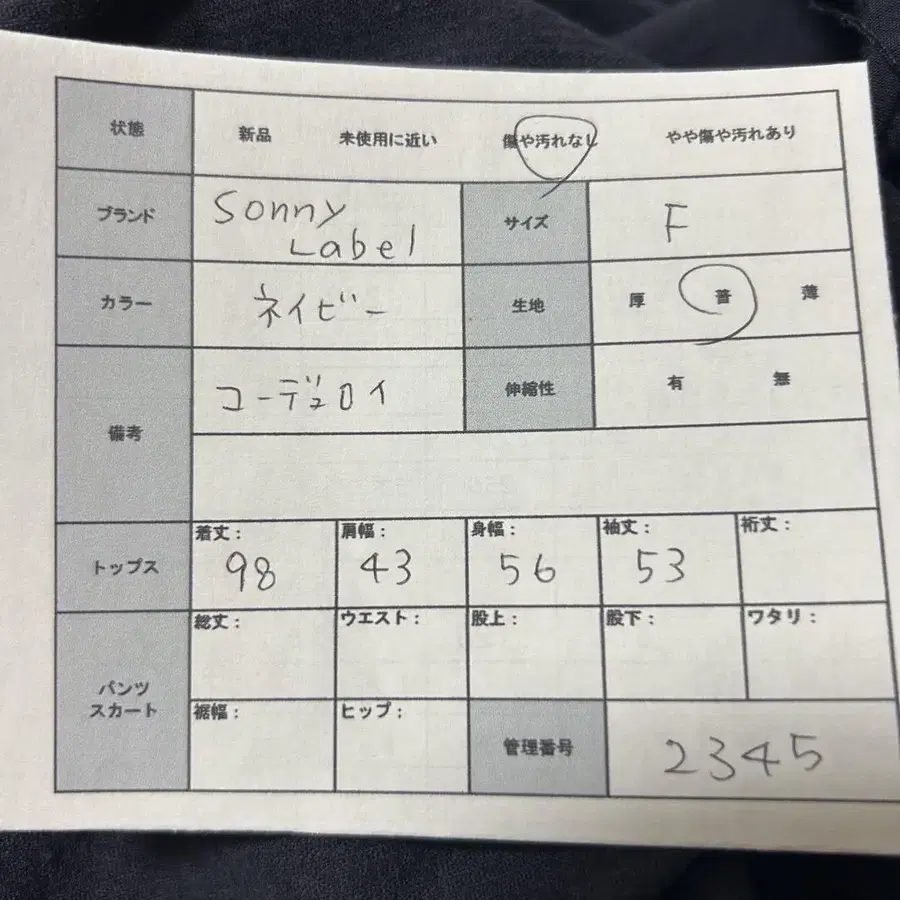 状態 新品 未使用に近い 傷や汚れなし やや傷や汚れあり
ブランド Sonny Label サイズ F
カラー ネイビー 生地 厚 普 薄
備考 コーデュロイ 伸縮性 有 無
トップス 着丈: 98 肩幅: 43 身幅: 56 袖丈: 53 裄丈:
パンツ スカート 総丈: ウエスト: 股上: 股下: ワタリ:
裾幅: ヒップ: 管理番号 2345